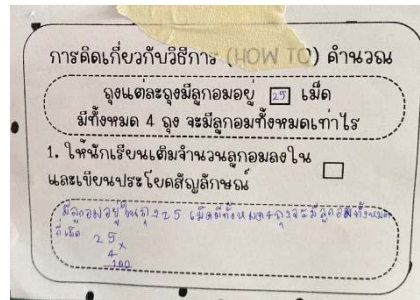 การคิดเกี่ยวกับวิธีการ (HOW TO) คำนวณ
ถุงแต่ละถุงมีลูกอมอยู่ 25 เม็ด
มีทั้งหมด 4 ถุง จะมีลูกอมทั้งหมดเท่าไร
1. ให้นักเรียนเติมจำนวนลูกอมลงใน
และเขียนประโยคสัญลักษณ์
มีลูกอมอยู่ในถุง 25 เม็ดมีทั้งหมด 4 ถุงจะมีลูกอมทั้งหมด
กี่เม็ด 25 ×
4
100